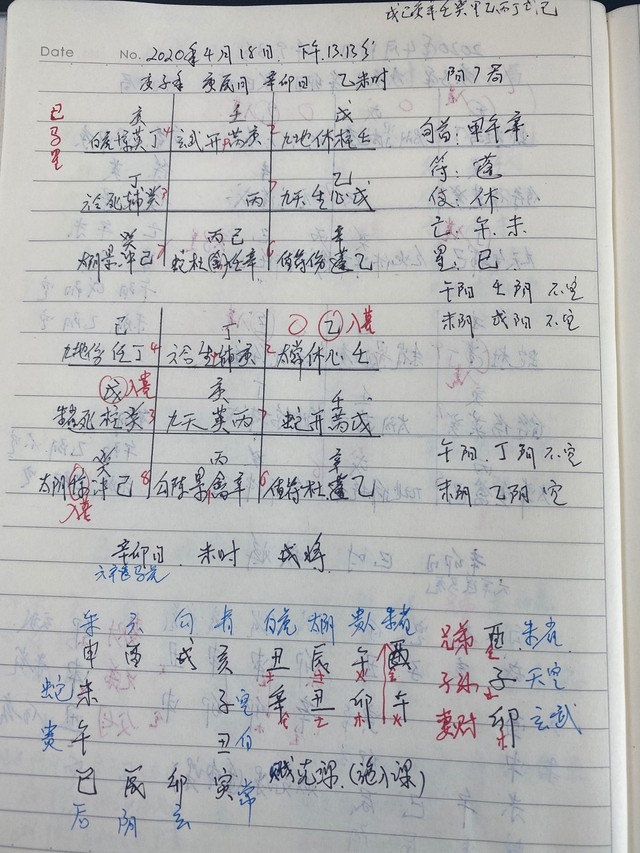 戊己庚辛壬癸 乙丙丁 己
Date No. 2020年4月18日. 下午.13.13分
庚子年 庚辰月 辛卯日 乙未时 阳7局
巳 庚 壬 戊
白虎 英丁4 玄武开 芮庚 2九地休柱壬 旬首:甲午辛
丁 乙 符:蓬
六合死辅癸3 丙 7九天生心戊 使:休
癸 丙己 辛 亡:午.未
太阴景冲己 蛇杜(禽)任辛 6值符伤蓬乙 星:巳
午阳 壬阴 不空
未阴 戊阳 不空
己 丁 〇 乙入墓
九地伤任丁4 六合生辅庚 2太常休心壬
戊入墓 庚 壬
死柱癸3 九天英丙7 蛇开芮戊
癸 丙 辛 午阳.丁阴不空
太阴 冲己8 勾陈景禽辛 6值符杜蓬乙 未阴 乙阴 空
入墓
辛卯日. 未时 戌将
朱 六 勾 青 白虎 太阴 贵人 朱雀
申 酉 戌 亥 丑 辰 午 酉 兄弟 酉 朱雀
蛇 未 子空 辛 丑 卯 午 子孙 子 天空
贵 午 丑白 妻财 卯 玄武
巳 辰 卯 寅常 元课.
后 阴 玄